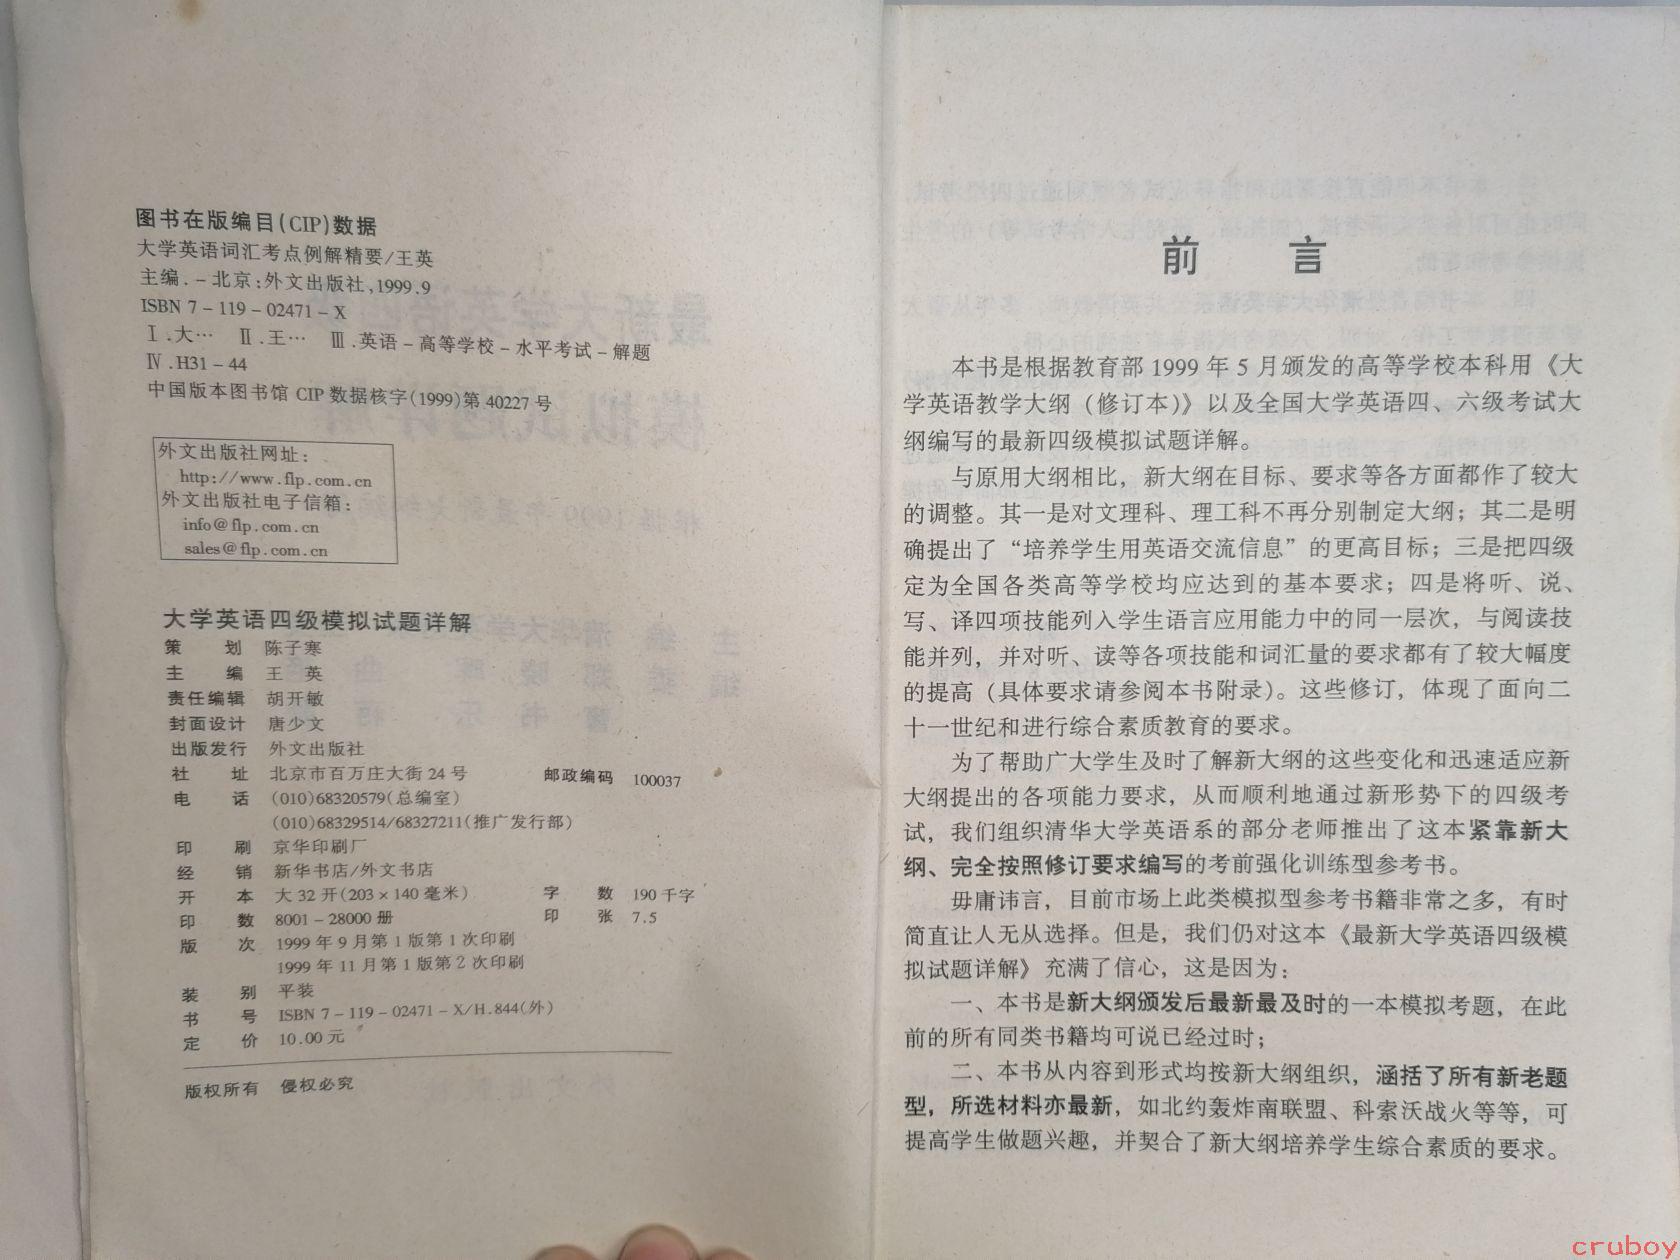 图书在版编目(CIP)数据
大学英语词汇考点例解精要/王英
主编.－北京:外文出版社,1999.9
ISBN 7－119－02471－X
Ⅰ.大… Ⅱ.王… Ⅲ.英语－高等学校－水平考试－解题
Ⅳ.H31－44
中国版本图书馆 CIP 数据核字(1999)第 40227 号
外文出版社网址:
http://www.flp.com.cn
外文出版社电子信箱:
info@flp.com.cn
sales@flp.com.cn
大学英语四级模拟试题详解
策 划 陈子寒
主 编 王 英
责任编辑 胡开敏
封面设计 唐少文
出版发行 外文出版社
社 址 北京市百万庄大街 24 号 邮政编码 100037
电 话 (010)68320579(总编室)
(010)68329514/68327211(推广发行部)
印 刷 京华印刷厂
经 销 新华书店/外文书店
开 本 大 32 开(203×140 毫米) 字 数 190 千字
印 数 8001－28000 册 印 张 7.5
版 次 1999 年 9 月第 1 版第 1 次印刷
1999 年 11 月第 1 版第 2 次印刷
装 别 平装
书 号 ISBN 7－119－02471－X/H.844(外)
定 价 10.00 元
版权所有 侵权必究
前 言
本书是根据教育部 1999 年 5 月颁发的高等学校本科用《大
学英语教学大纲（修订本）》以及全国大学英语四、六级考试大
纲编写的最新四级模拟试题详解。
与原用大纲相比，新大纲在目标、要求等各方面都作了较大
的调整。其一是对文理科、理工科不再分别制定大纲；其二是明
确提出了“培养学生用英语交流信息”的更高目标；三是把四级
定为全国各类高等学校均应达到的基本要求；四是将听、说、
写、译四项技能列入学生语言应用能力中的同一层次，与阅读技
能并列，并对听、读等各项技能和词汇量的要求都有了较大幅度
的提高（具体要求请参阅本书附录）。这些修订，体现了面向二
十一世纪和进行综合素质教育的要求。
为了帮助广大学生及时了解新大纲的这些变化和迅速适应新
大纲提出的各项能力要求，从而顺利地通过新形势下的四级考
试，我们组织清华大学英语系的部分老师推出了这本紧靠新大
纲、完全按照修订要求编写的考前强化训练型参考书。
毋庸讳言，目前市场上此类模拟型参考书籍非常之多，有时
简直让人无从选择。但是，我们仍对这本《最新大学英语四级模
拟试题详解》充满了信心，这是因为：
一、本书是新大纲颁发后最新最及时的一本模拟考题，在此
前的所有同类书籍均可说已经过时；
二、本书从内容到形式均按新大纲组织，涵括了所有新老题
型，所选材料亦最新，如北约轰炸南联盟、科索沃战火等等，可
提高学生做题兴趣，并契合了新大纲培养学生综合素质的要求。
cruboy